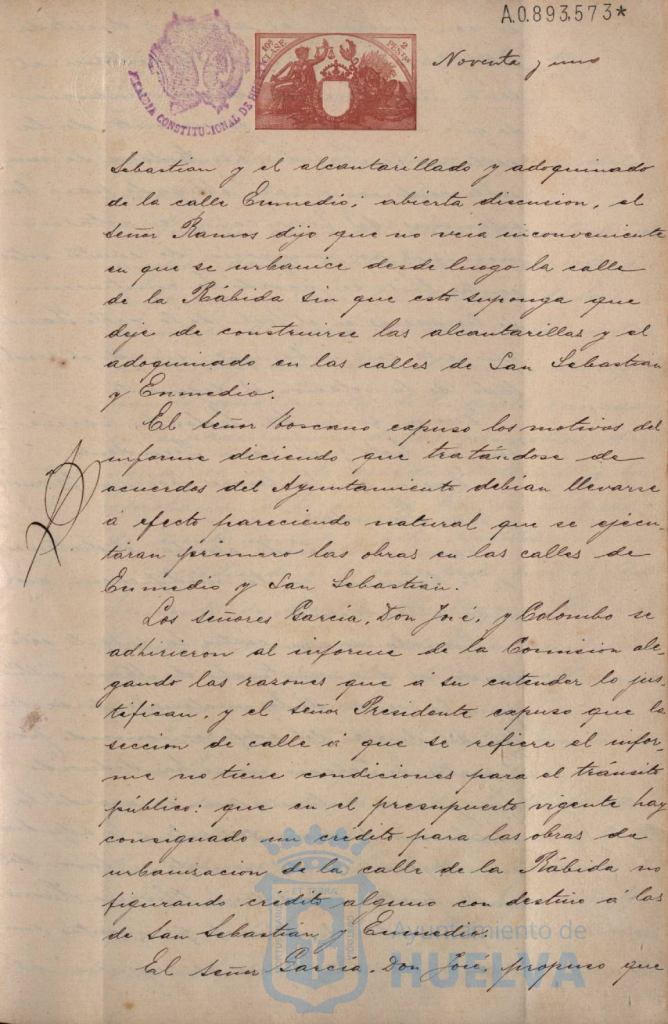 A.0.893,573*
ALCALDIA CONSTITUCIONAL DE HUELVA
10ª CLASE
2 PESETAS
Noventa y uno
Sebastian y el alcantarillado y adoquinado
de la calle Enmedio; abierta discusion, el
señor Ramos dijo que no veia inconveniente
en que se urbanice desde luego la calle
de la Rábida sin que esto suponga que
deje de construirse las alcantarillas y el
adoquinado en las calles de San Sebastian
y Enmedio.
El señor Toscano expuso los motivos del
informe diciendo que tratándose de
acuerdos del Ayuntamiento debian llevarse
á efecto pareciendo natural que se ejecu-
taran primero las obras en las calles de
Enmedio y San Sebastian.
Los señores García, Don José, y Colombo se
adhirieron al informe de la Comision ale-
gando las razones que á su entender lo jus-
tifican, y el señor Presidente expuso que la
seccion de calle á que se refiere el infor-
me no tiene condiciones para el tránsito
público: que en el presupuesto vigente hay
consignado un crédito para las obras de
urbanizacion de la calle de la Rábida no
figurando crédito alguno con destino á las
de San Sebastian y Enmedio.
El señor García, Don José, propuso que
Ayuntamiento de
HUELVA